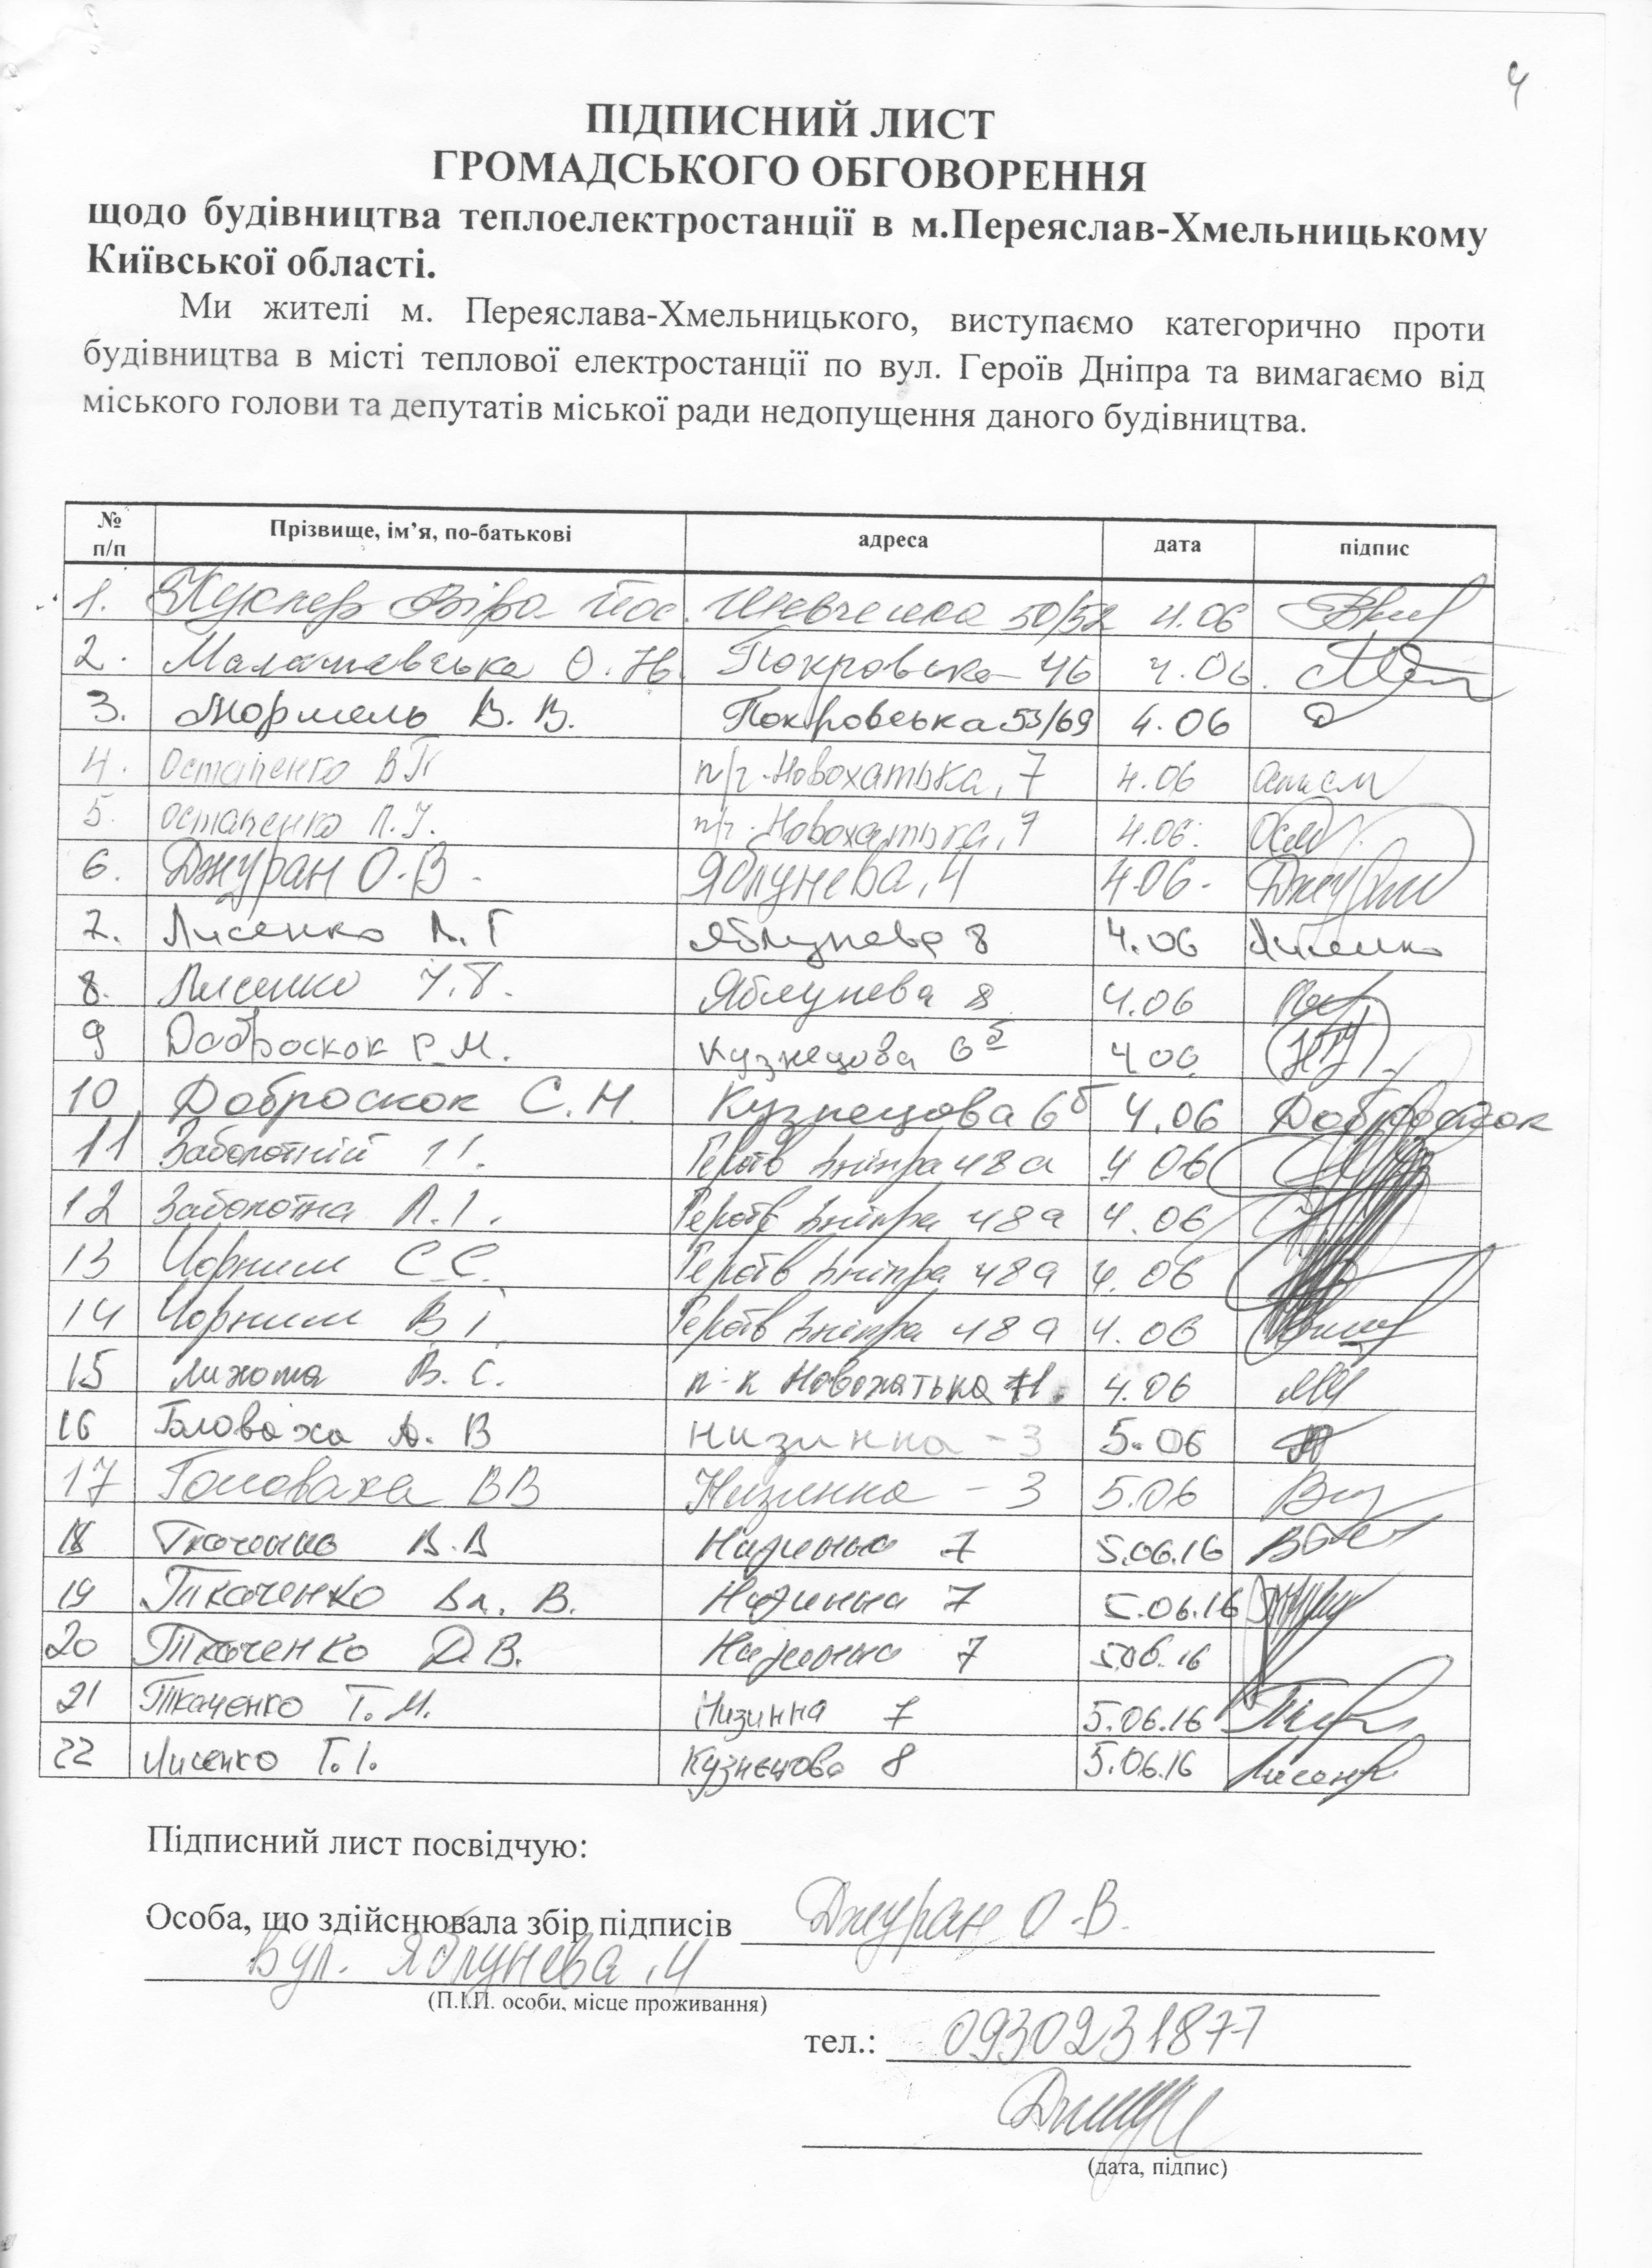 4
ПІДПИСНИЙ ЛИСТ
ГРОМАДСЬКОГО ОБГОВОРЕННЯ
щодо будівництва теплоелектростанції в м.Переяслав-Хмельницькому
Київської області.
Ми жителі м. Переяслава-Хмельницького, виступаємо категорично проти
будівництва в місті теплової електростанції по вул. Героїв Дніпра та вимагаємо від
міського голови та депутатів міської ради недопущення даного будівництва.
№ п/п Прізвище, ім’я, по-батькові адреса дата підпис
1. Віра Йос. Шевченка 50/52 4.06
2. О. Покровська 46 4.06
3. Мормель В. В. Покровська 53/69 4.06
4. Остапенко В П п/г. Новохатька, 7 4.06
5. Остапенко Л.І. п/г. Новохатька, 7 4.06
6. Джуран О.В. Яблунева, 4 4.06
7. Лисенко Л. Г Яблунева 8 4.06 Лисенко
8. Лисенко Яблунева 8 4.06
9 Доброскок Г. М. Кузнецова 6б 4 06
10 Доброскок С. Н. Кузнецова 6б 4.06 Доброскок
11 Заболотній І.І. Героїв Дніпра 48а 4 06
12 Заболотна Л.І. Героїв Дніпра 48а 4.06
13 Чорний С.С. Героїв Дніпра 48а 4.06
14 Чорний В І. Героїв Дніпра 48а 4.06
15 Лихота В. С. Новохатька 4.06
16 Головаха А. В Низинна - 3 5.06
17 Головаха В В Низинна - 3 5.06
18 Ткаченко В. В Низинна 7 5.06.16
19 Ткаченко Вл. В. Низинна 7 5.06.16
20 Ткаченко Д. В. Низинна 7 5.06.16
21 Ткаченко Т. М. Низинна 7 5.06.16
22 Лисенко Г. І. Кузнєцова 8 5.06.16 Лисенко
Підписний лист посвідчую:
Особа, що здійснювала збір підписів Джуран О.В.
Вул. Яблунева, 4
(П.І.П. особи, місце проживання)
тел.: 0930231877
(дата, підпис)